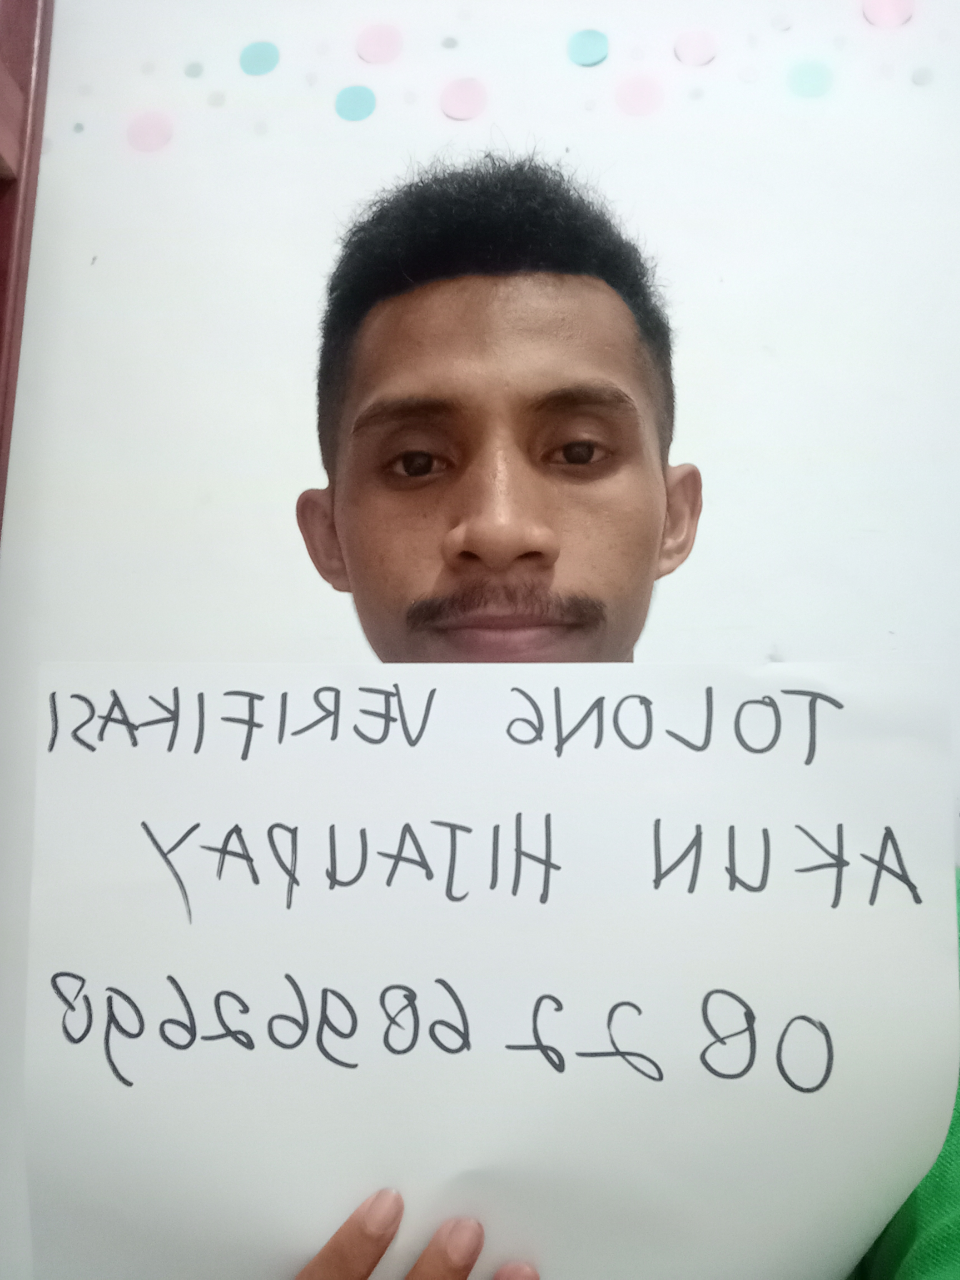 TOLONG VERIFIKASI
AKUN HIJAUPAY
082268962698